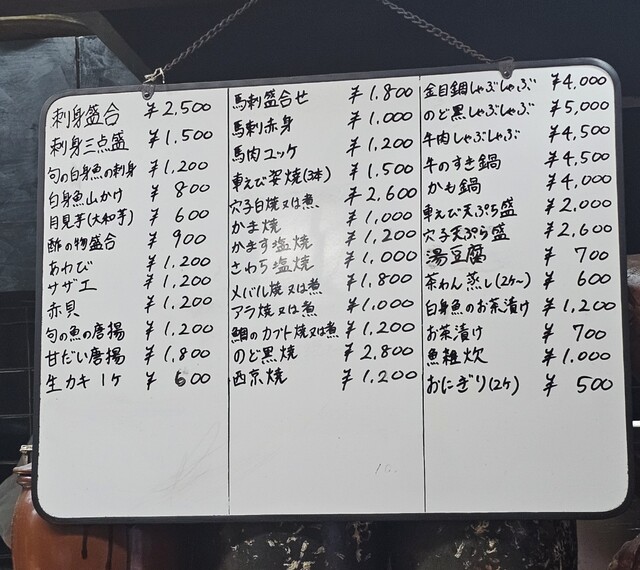 刺身盛合 ¥2,500
刺身三点盛 ¥1,500
旬の白身魚の刺身 ¥1,200
白身魚山かけ ¥800
月見芋(大和芋) ¥600
酢の物盛合 ¥900
あわび ¥1,200
サザエ ¥1,200
赤貝 ¥1,200
旬の魚の唐揚 ¥1,200
甘だい唐揚 ¥1,800
生カキ1ケ ¥600
馬刺盛合せ ¥1,800
馬刺赤身 ¥1,000
馬肉ユッケ ¥1,200
車えび姿焼(3本) ¥1,500
穴子白焼又は煮 ¥2,600
かま焼 ¥1,000
かます塩焼 ¥1,200
さわら塩焼 ¥1,000
メバル焼又は煮 ¥1,800
アラ焼又は煮 ¥1,000
鯛のカブト焼又は煮 ¥1,200
のど黒焼 ¥2,800
西京焼 ¥1,200
金目鯛しゃぶしゃぶ ¥4,000
のど黒しゃぶしゃぶ ¥5,000
牛肉しゃぶしゃぶ ¥4,500
牛のすき鍋 ¥4,500
かも鍋 ¥4,000
車えび天ぷら盛 ¥2,000
穴子天ぷら盛 ¥2,600
湯豆腐 ¥700
茶わん蒸し(2ケ〜) ¥600
白身魚のお茶漬け ¥1,200
お茶漬け ¥700
魚雑炊 ¥1,000
おにぎり(2ケ) ¥500